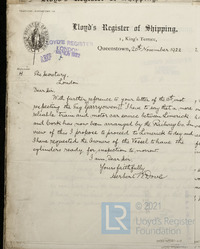 Lloyd's Register of Shipping,
2, King's Terrace,
Queenstown, 20th November 1922
LLOYD'S REGISTER
The Secretary,
London
Dear Sir
With further reference to your letter of the 8th inst
respecting the I have to say that a more
reliable train and motor car service between Limerick
and Cork has now been arranged by the Railway Co. In
view of this I propose to proceed to Limerick today and
I have requested the Owners of the Vessel to have the
cylinders ready for inspection tomorrow.
I am, Dear Sir
Yours faithfully
© 2021
Lloyd's Register
Foundation